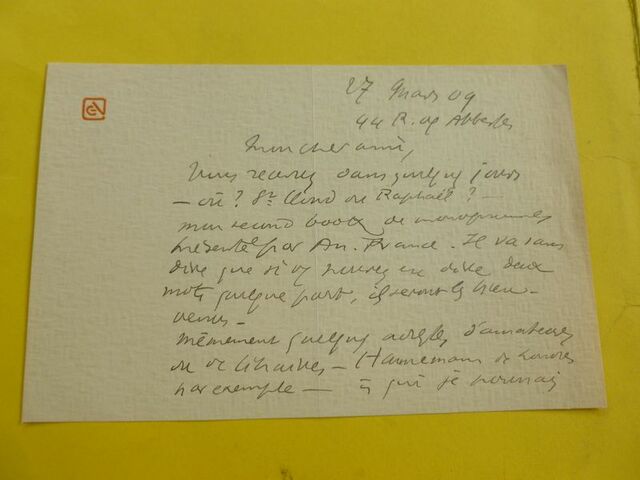 27 Mars 09
44 R. des Abbesses
Mon cher ami,
Vous recevrez dans quelques jours
— où ? St Cloud ou Raphaël ? —
mon second book de monogrammes
présenté par An. France. Il va sans
dire que si vs pouvez en dire deux
mots quelque part, ils seront les bien-
venus —
Mêmement quelques adresses d'amateurs
ou de libraires — Hannemann de Londres
par exemple — à qui je pourrais